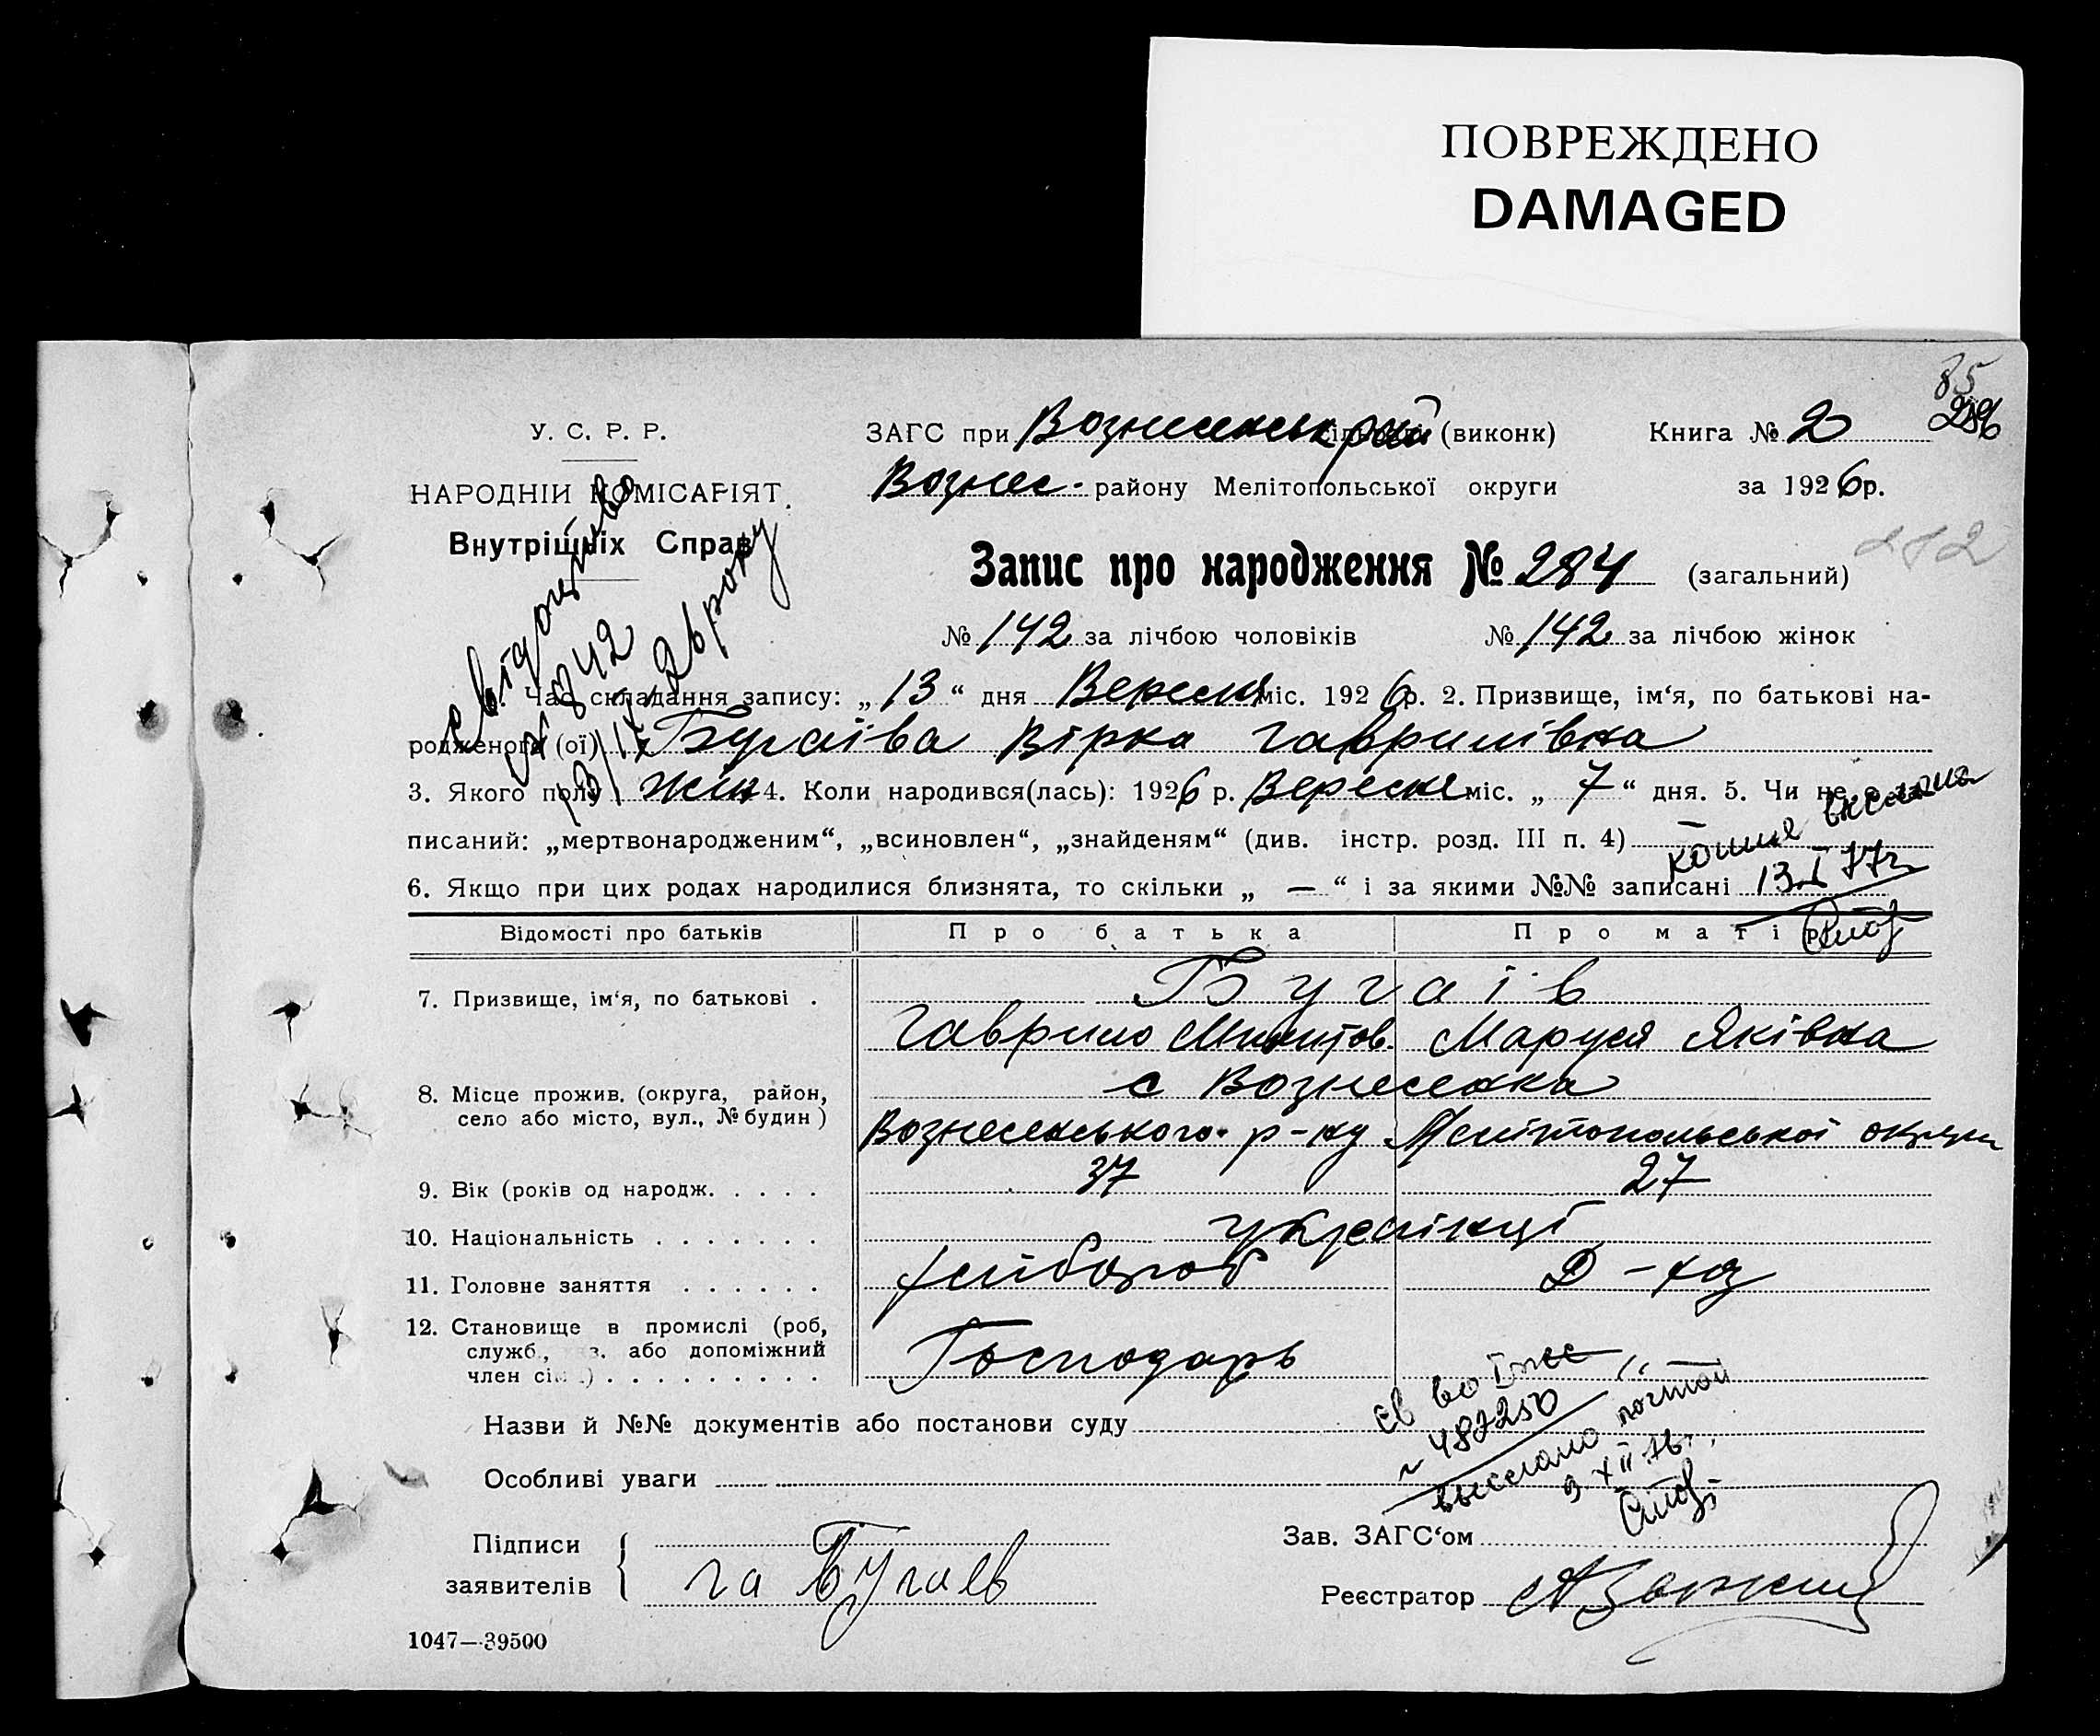 ПОВРЕЖДЕНО
DAMAGED
85
286
У. С. Р. Р.
НАРОДНІЙ КОМІСАРІЯТ
Внутрішніх Справ
ЗАГС при Вознесенськрий (виконк) Книга № 2
Вознес. району Мелітопольської округи за 1926 р.
Запис про народження № 284 (загальний)
№ 142 за лічбою чоловіків № 142 за лічбою жінок
свідоцтво
№ 842
13/IX 26 року
1. Час складання запису: „13“ дня Вересня міс. 1926 р. 2. Призвище, ім‘я, по батькові на-
родженого (ої) Бугаїва Вірка Гаврилівна
3. Якого полу жін 4. Коли народився(лась): 1926 р. Вересня міс. „7“ дня. 5. Чи не є за-
писаний: „мертвонародженим“, „всиновлен“, „знайденям“ (див. інстр. розд. III п. 4) —
копия выслана
13 I 77г
6. Якщо при цих родах народилися близнята, то скільки „—“ і за якими №№ записані
Відомості про батьків Про батька Про матір
7. Призвище, ім‘я, по батькові . Бугаїв
Гаврило Микитов. Маруся Яківна
8. Місце прожив. (округа, район, село або місто, вул., № будин) с Вознесенка
Вознесенського р-ну Мелітопольської округи
9. Вік (років од народж. . . . . 37 27
10. Національність . . . . . . . українці
11. Головне заняття . . . . . . хлібороб Д-хаз
12. Становище в промислі (роб, служб., або допоміжний член сім.) . . . . . . . . . Господарь
Назви й №№ документів або постанови суду
Особливі уваги
№ 482250
выслано почтой
3 XII 76г.
Підписи заявителів { га Бугаев
Зав. ЗАГС‘ом
Реєстратор
1047—39500